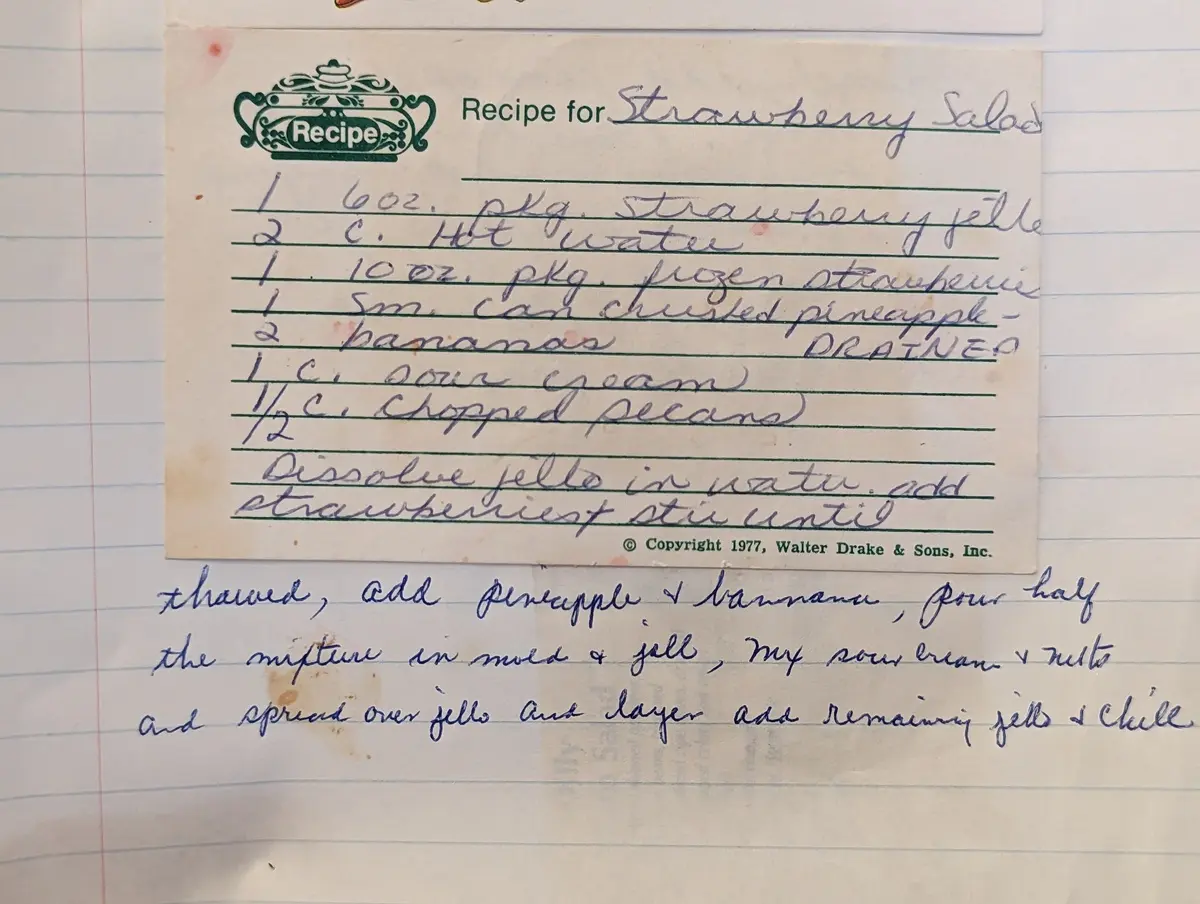 Recipe
Recipe for Strawberry Salad
1 6oz. pkg. strawberry jello
2 c. Hot water
1 10 oz. pkg. frozen strawberrie
1 sm. can crushed pineapple -
2 bananas DRAINED
1 c. sour cream
1/2 c. chopped pecans
Dissolve jello in water. add
strawberries + stir until
© Copyright 1977, Walter Drake & Sons, Inc.
thawed, add pineapple & bannana, pour half
the mixture in mold & jell, mix sour cream & nuts
and spread over jello and layer add remaining jello & chill